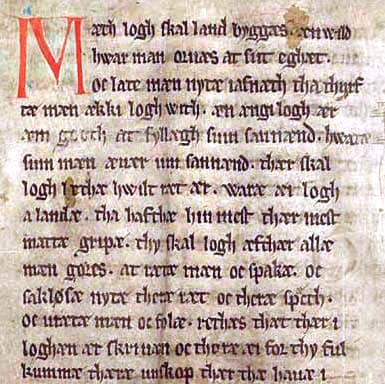 Mæth logh skal land byggæs. æn wild
hwar man oruæs at sitt eghet.
oc late mæn nytæ iafnæth tha thyrf
tæ mæn ækki logh with. æn ængi logh ær
æm goth at fyllægh sum sannænd. hwaræ
sum mæn æuær um sannænd. thær skal
logh lethæ hwilt ret ær. waræ æi logh
a landæ. tha hafthæ hin mest thær mest
mattæ gripæ. thy skal logh æfthær allæ
mæn gøres. at rætæ mæn oc spakæ. oc
saklösæ nytæ theræ ræt oc theræ spæth.
oc urætæ mæn oc folæ. rethæs thæt thær i
loghæn ær skriuæn oc thoræ æi for thy ful
kummæ theræ unskop thær the hauæ i